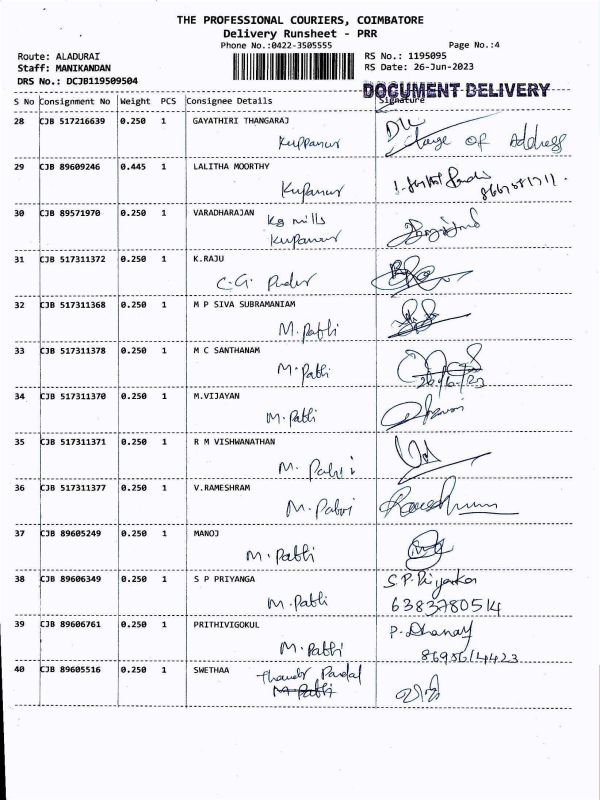 THE PROFESSIONAL COURIERS, COIMBATORE
Delivery Runsheet - PRR
Phone No.:0422-3505555 Page No.:4
Route: ALADURAI RS No.: 1195095
Staff: MANIKANDAN RS Date: 26-Jun-2023
DRS No.: DCJB119509504
DOCUMENT DELIVERY
S No Consignment No Weight PCS Consignee Details Signature
28 CJB 517216639 0.250 1 GAYATHIRI THANGARAJ
Kuppanur of Address
29 CJB 89609246 0.445 1 LALITHA MOORTHY
Kupanur
30 CJB 89571970 0.250 1 VARADHARAJAN Kg mills
Kupanur
31 CJB 517311372 0.250 1 K.RAJU
C.G.
32 CJB 517311368 0.250 1 M P SIVA SUBRAMANIAM
M.Patti
33 CJB 517311378 0.250 1 M C SANTHANAM
M.Patti 26/6/23
34 CJB 517311370 0.250 1 M.VIJAYAN
M.Patti
35 CJB 517311371 0.250 1 R M VISHWANATHAN
M.Patti
36 CJB 517311377 0.250 1 V.RAMESHRAM
M.Patti Rameshram
37 CJB 89605249 0.250 1 MANOJ
M.Patti
38 CJB 89606349 0.250 1 S P PRIYANGA S.P.Priyanka
M.Patti 6383780514
39 CJB 89606761 0.250 1 PRITHIVIGOKUL P. Dhanay
M.Patti 8695614423
40 CJB 89605516 0.250 1 SWETHAA
M.Patti